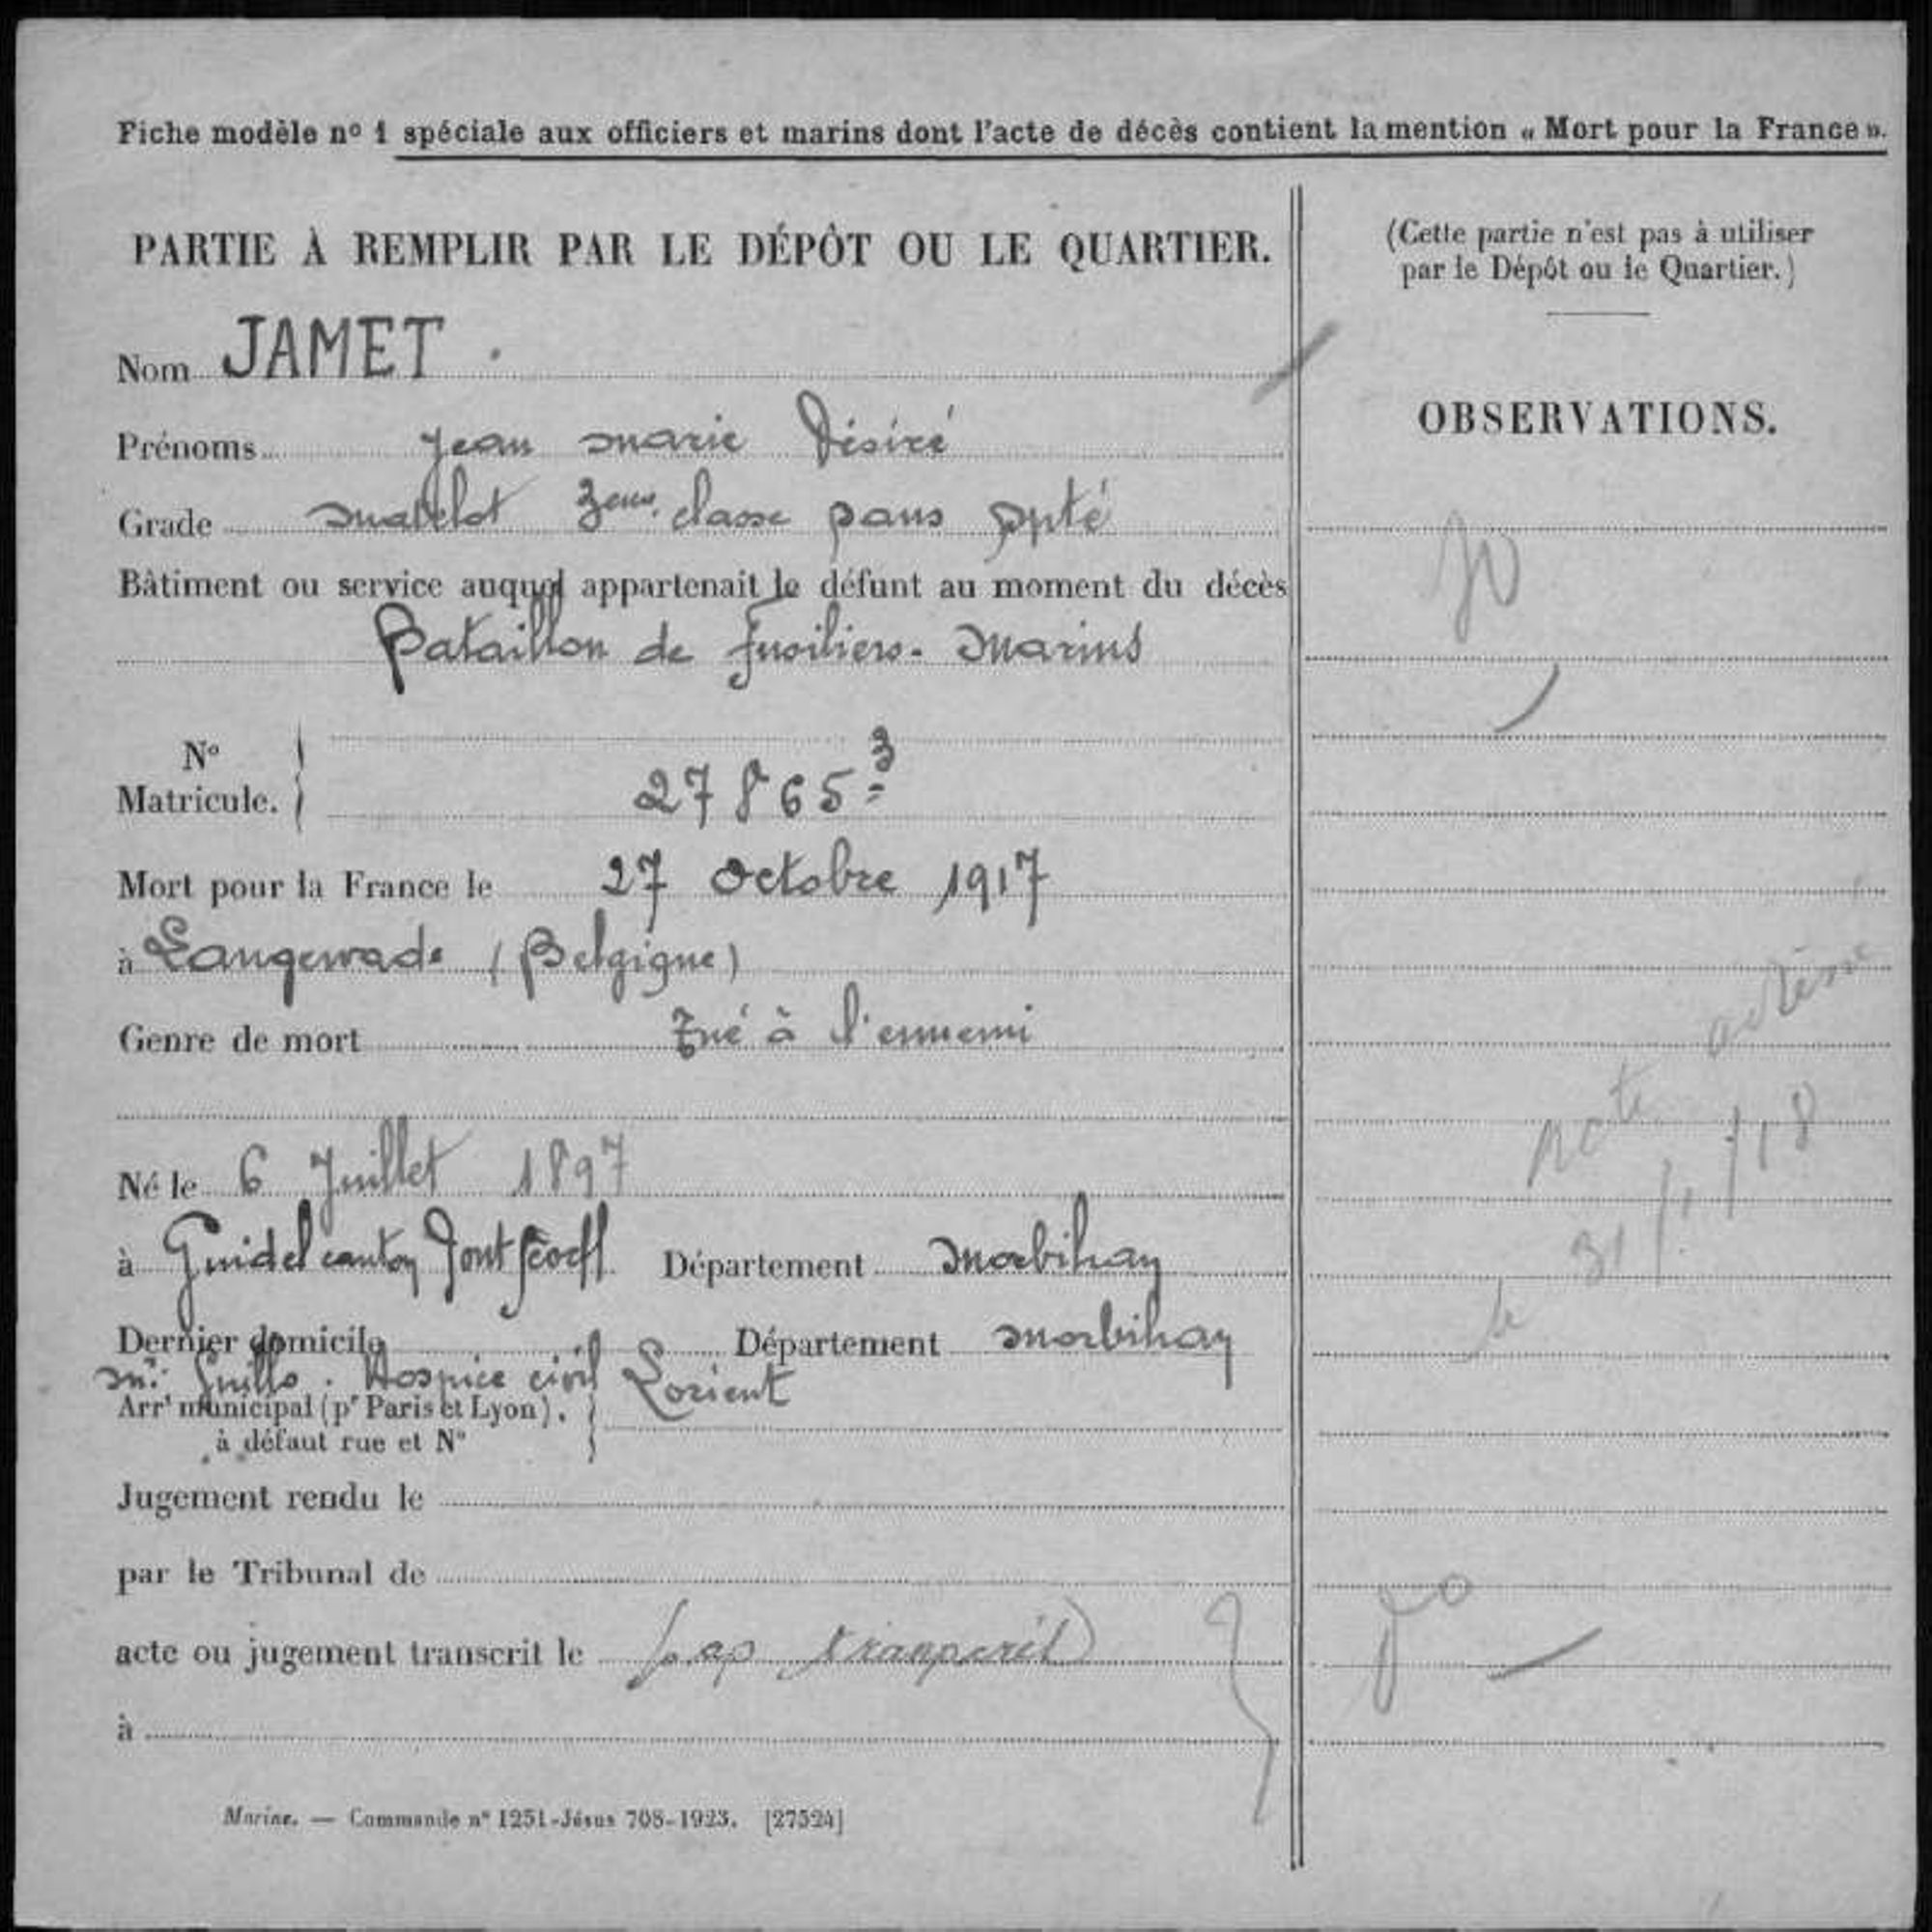 Fiche modèle n° 1 spéciale aux officiers et marins dont l'acte de décès contient la mention « Mort pour la France ».
PARTIE À REMPLIR PAR LE DÉPÔT OU LE QUARTIER.
(Cette partie n'est pas à utiliser
par le Dépôt ou le Quartier.)
Nom JAMET
OBSERVATIONS.
Prénoms Jean Marie Désiré
Grade Matelot 3eme classe sans spté
Bâtiment ou service auquel appartenait le défunt au moment du décès
Bataillon de Fusiliers-Marins
N°
Matricule. 27865=3
Mort pour la France le 27 Octobre 1917
à Langewade (Belgique)
Genre de mort Tué à l'ennemi
Né le 6 Juillet 1897
à Guidel canton Pont Scorff Département Morbihan
Dernier domicile Département Morbihan
Mr. Guillo. Hospice civil Lorient
Arrt municipal (pr Paris et Lyon),
à défaut rue et N°
Jugement rendu le
par le Tribunal de
acte ou jugement transcrit le (pas transcrit)
à
31/1/18
Marine. — Commande n° 1251-Jésus 708-1923. [27524]